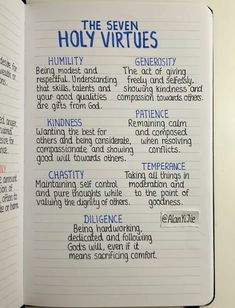 THE SEVEN
HOLY VIRTUES
HUMILITY
Being modest and
respectful. Understanding
that skills, talents and
your good qualities
are gifts from God.
GENEROSITY
The act of giving
freely and selflessly,
showing kindness and
compassion towards others.
KINDNESS
Wanting the best for
others and being considerate,
compassionate and showing
good will towards others.
PATIENCE
Remaining calm
and composed
when resolving
conflicts.
CHASTITY
Maintaining self control
and pure thoughts while
valuing the dignity of others.
TEMPERANCE
Taking all things in
moderation and
to the point of
goodness.
DILIGENCE
Being hardworking,
dedicated and following
God's will, even if it
means sacrificing comfort.